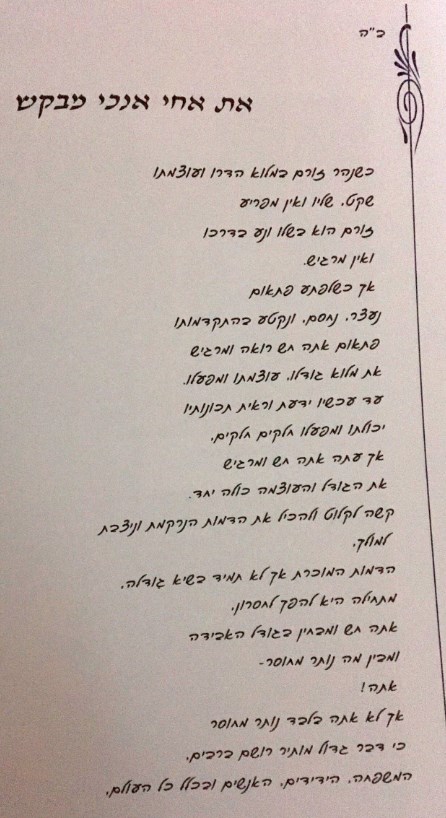 כ"ה
את אחי אנכי מבקש
כשנהר זורם במלוא הדרו ועוצמתו
שקט, שליו ואין מפריע
זורם הוא בשלו ונע בדרכו
ואין מרגיש.
אך כשלפתע פתאום
נעצר, נחסם, ונקטע בהתקדמותו
פתאום אתה חש רואה ומרגיש
את מלוא גודלו, עוצמתו ומפעלו.
עד עכשיו ידעת וראית תכונותיו
יכולתו ומפעלו חלקים חלקים,
אך עתה אתה חש ומרגיש
את הגודל והעוצמה כולה יחד.
קשה לקלוט ולהכיל את הדמות הנרקמת וניצבת
למולך,
הדמות המוכרת אך לא תמיד בשיא גודלה,
מתחילה היא להפך לחסרון,
אתה חש ומבחין בגודל האבידה
ומבין מה נותר מחוסר-
אתה!
אך לא אתה בלבד נותר מחוסר
כי דבר גדול מותיר רושם ברבים,
המשפחה, הידידים, האנשים ובכלל כל העולם,